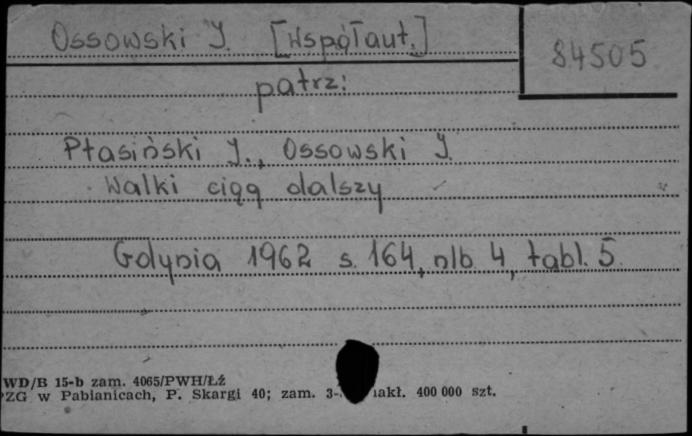 Ossowski J. [Współaut.]
84505
patrz:
Ptasiński J., Ossowski J.
Walki ciąg dalszy
Gdynia 1962 s. 164, nlb 4, tabl. 5
WD/B 15-b zam. 4065/PWH/Łź
PZG w Pabianicach, P. Skargi 40; zam. 3- nakł. 400 000 szt.